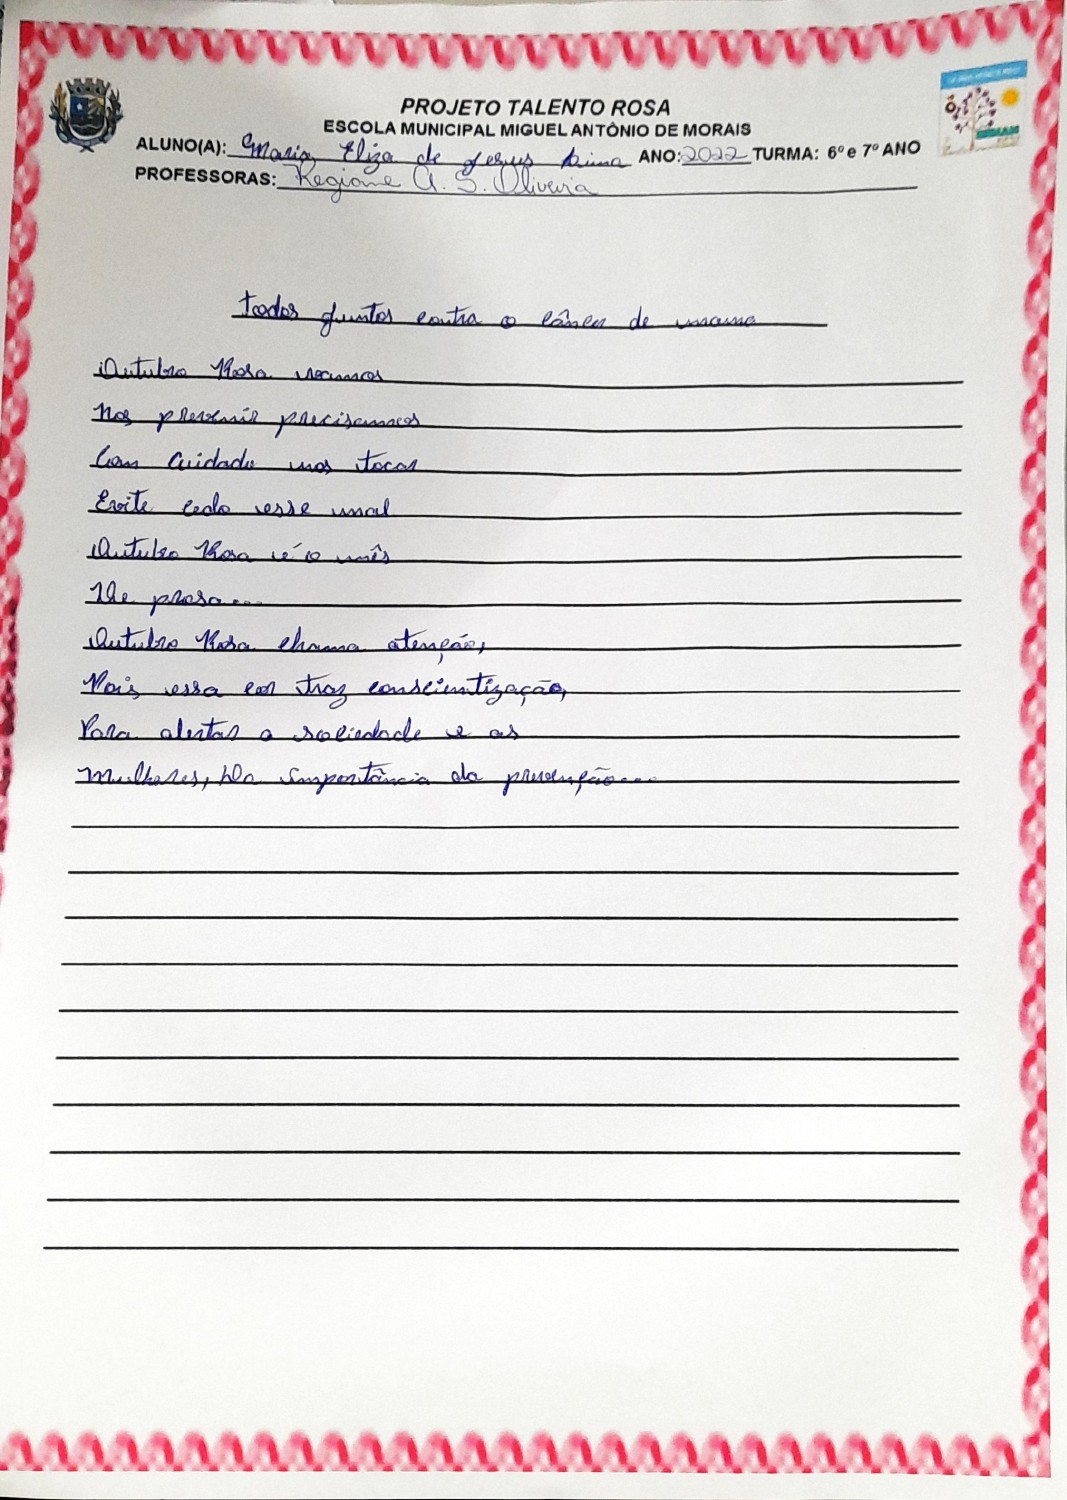 PROJETO TALENTO ROSA
ESCOLA MUNICIPAL MIGUEL ANTÔNIO DE MORAIS
ALUNO(A): Maria Eliza de Jesus Lima ANO: 2022 TURMA: 6º e 7º ANO
PROFESSORAS: Regiane A. S. Oliveira
Todos juntos contra o câncer de mama
Outubro Rosa vamos
Nos prevenir precisamos
Com cuidado nos tocar
Evite cedo esse mal
Outubro Rosa é o mês
De prosa...
Outubro Rosa chama atenção,
Pois, essa cor traz conscientização,
Para alertar a sociedade e as
Mulheres, Da importância da prevenção...